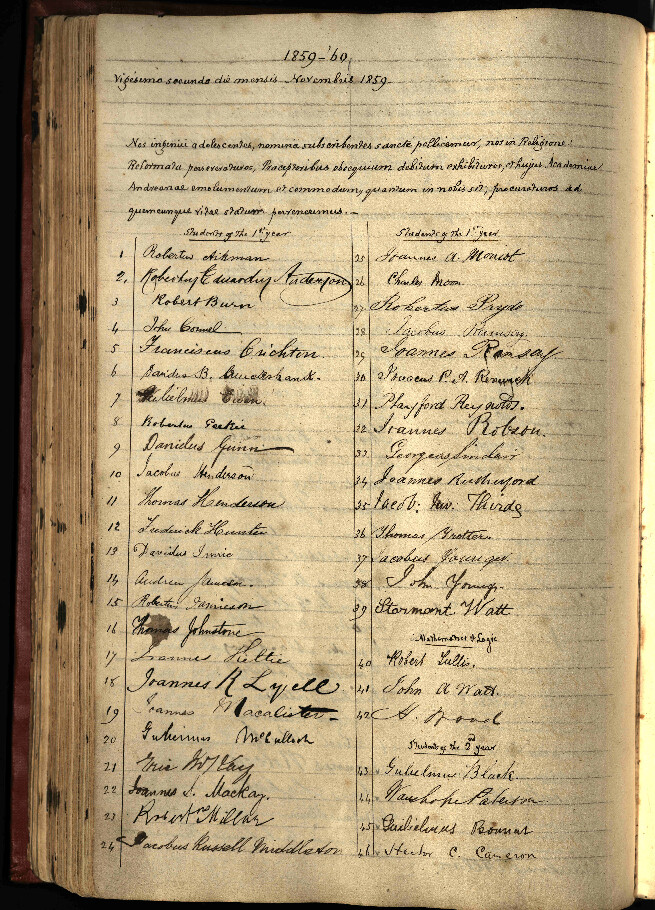 1859-'60
Vigesimo secundo die mensis Novembris 1859
Nos ingenui adolescentes, nomina subscribentes sancte pollicemur, nos in Religione
Reformata perseveraturos, Praeceptoribus obsequium debitum exhibituros, et hujus Academiae
Andreanae emolumentum et commodum, quantum in nobis est, procuraturos ad
quemcunque vitae statum pervenerimus.
Students of the 1st year
1 Robertus Aikman
2. Robertus Edwardus Anderson
3 Robert Burn
4 John Connel
5 Franciscus Crichton.
6 Davidus B.
7 Gulielmus
8 Robertus
9 Davidus Gunn
10 Jacobus Henderson
11 Thomas Henderson
12 Frederick Hunter
13 Davidus Imrie
14 Andrew Jameson.
15 Robertus Jamieson
16 Thomas Johnstone
17 Joannes Kettie
18 Joannes K Lyell
19 Joannes Macalister
20 McCulloch
21 Eric McKay
22 Joannes S. Mackay.
23 Robert Millar
24 Jacobus Russell Middleton
Students of the 1st year
25 Joannes A.
26 Charles Moon
27 Robertus Pryde
28 Jacobus
29 Joannes Ramsay
30 P. A. Renwick
31 Playford Reynolds.
32 Joannes Robson.
33 Georgius Sinclair
34 Joannes Rutherford
35 Jacob:
36 Thomas Trotter.
37 Jacobus Younger.
38 John Young.
39 Stormont Watt
Mathematics & Logic
40 Robert Tullis.
41 John A Watt.
42 Wood
Students of the 2nd year
43 Gulielmus Black.
44 Wauchope Paterson
45 Gulielmus Bonnar
46 Hector C. Cameron